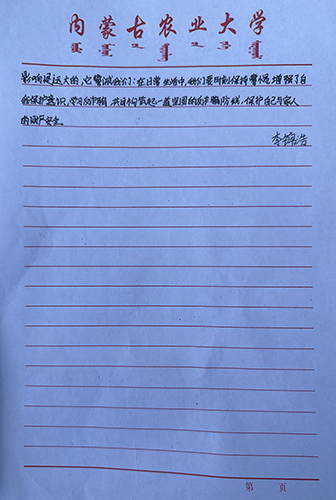 内蒙古农业大学
影响是远大的,它警诫我们:在日常生活中,我们要时刻保持警惕增强了自
我保护意识,学习防诈骗,共同构筑起一道坚固的防诈骗防线,保护自己与家人
的财产安全。
李锦浩
第 页